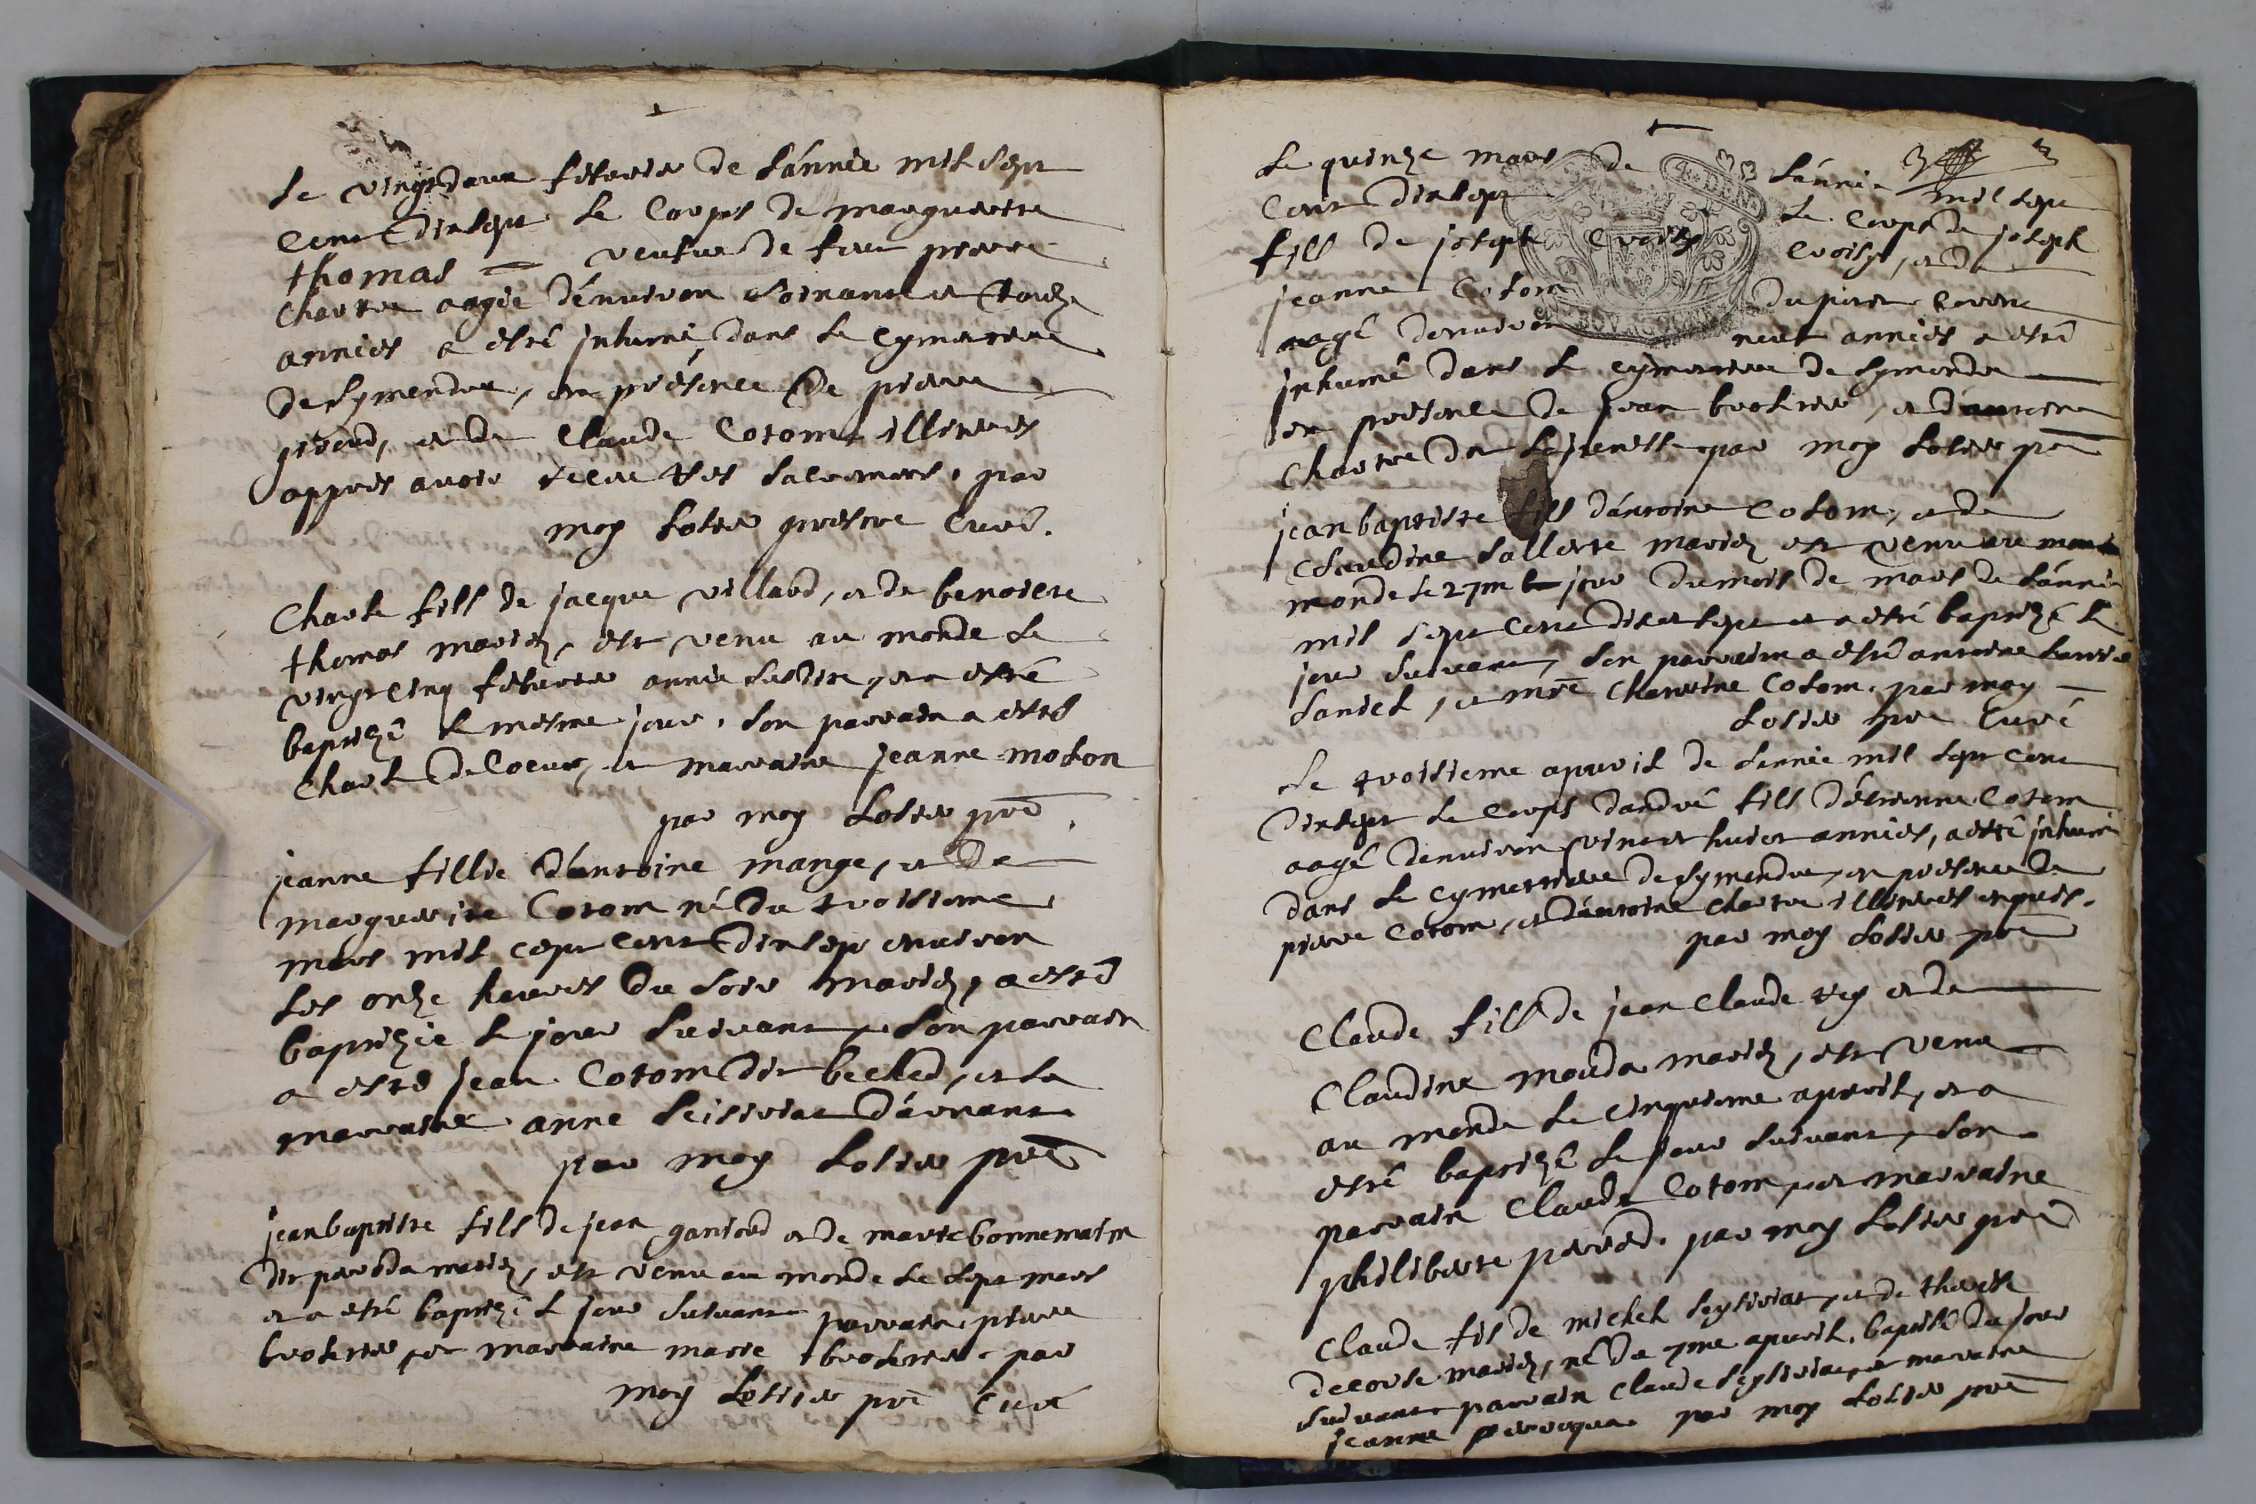 Le vingt deux febvrier de l'année mil sept
cent dix sept le corps de marguerite
thomas veufve de feu pierre
chartre aagée d'énviron soixante et treize
années a esté inhumé, dans le cymetiere
de symendre, en présence de pierre
giroud, et de claude Cotom illiteres
appres avoir receu ses sacremens. par
moy Lotier prestre curé.
Charle fills de jacque villard, et de benoiste
thomas mariez, est venu au monde le
vingt cinq febvrier année susdite, et a esté
baptizé le mesme jour. son parrain a esté
Charle De Coeur, et marraine jeanne molon
par moy Lotier pre.
jeanne fillie d'antoine mange, et de
marguerite Cotom né du troisieme
mars mil cept cent dix sept environ
les onze heures du soir mariez, a esté
baptizée le jour suivant, son parrain
a esté jean Cotom dit becled, et la
marraine anne seisiriat d'avrant
par moy Lotier pre
jean baptiste fills de jean ganiord et de marie bonnematin
dit perodda mariez, est venu au monde le sept mars
et a esté baptizé le jour suivant parrain pierre
brokere, et marraine marie brokere. par
moy Lotier pre curé
Le quinze mars de l'année mil sept
Cent dix sept le corps de joseph
fills de joseph croisy, et de
jeanne Cotom
aagé denviron neuf années a esté
inhumé dans le cymetiere de symendre
en présence de jean brokere, et d'antoine
chartre dit par moy Lotier pre
jean baptiste fills d'antoine Cotom, et de
Claudine sallette mariez est venu au
monde le 27me jour du mois de mars de l'année
mil sept cent dix et sept et a esté baptizé le
jour suivant, son parrain a esté antoine
Laniel, et mre Charlotine Cotom. par moy
Lotier pre curé
Le troisieme apvril de l'année mil sept cent
dix sept le corps d'andré fills d'étienne Cotom
aagé denviron vinct huict années, a esté inhumé
dans le cymetiere de symendre, en présence de
pierre Cotom, et d'antoine chartre illiteres enquis.
par moy Lotier pre
Claude fills de jean claude rey et de
Claudine monda mariez, est venu
au monde le cinquieme apvril, et a
esté baptizé le jour suivant, son
parrain Claude Cotom, et marraine
philiberte perrod. par moy Lotier pre
Claude fis de michel seysiriat, et de
decourse mariez, né du 7me apvril. baptisé du jour
suivant parrain claude seysiriat, et marraine
jeanne par moy Lotier pre